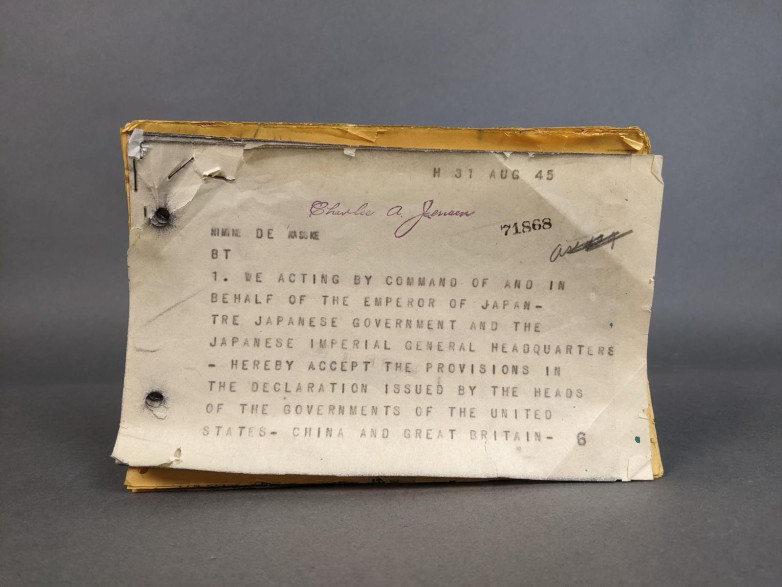 H 31 AUG 45
Charlie A. Jensen
71868
DE
BT
1. WE ACTING BY COMMAND OF AND IN
BEHALF OF THE EMPEROR OF JAPAN-
TRE JAPANESE GOVERNMENT AND THE
JAPANESE IMPERIAL GENERAL HEADQUARTERS
- HEREBY ACCEPT THE PROVISIONS IN
THE DECLARATION ISSUED BY THE HEADS
OF THE GOVERNMENTS OF THE UNITED
STATES- CHINA AND GREAT BRITAIN- 6